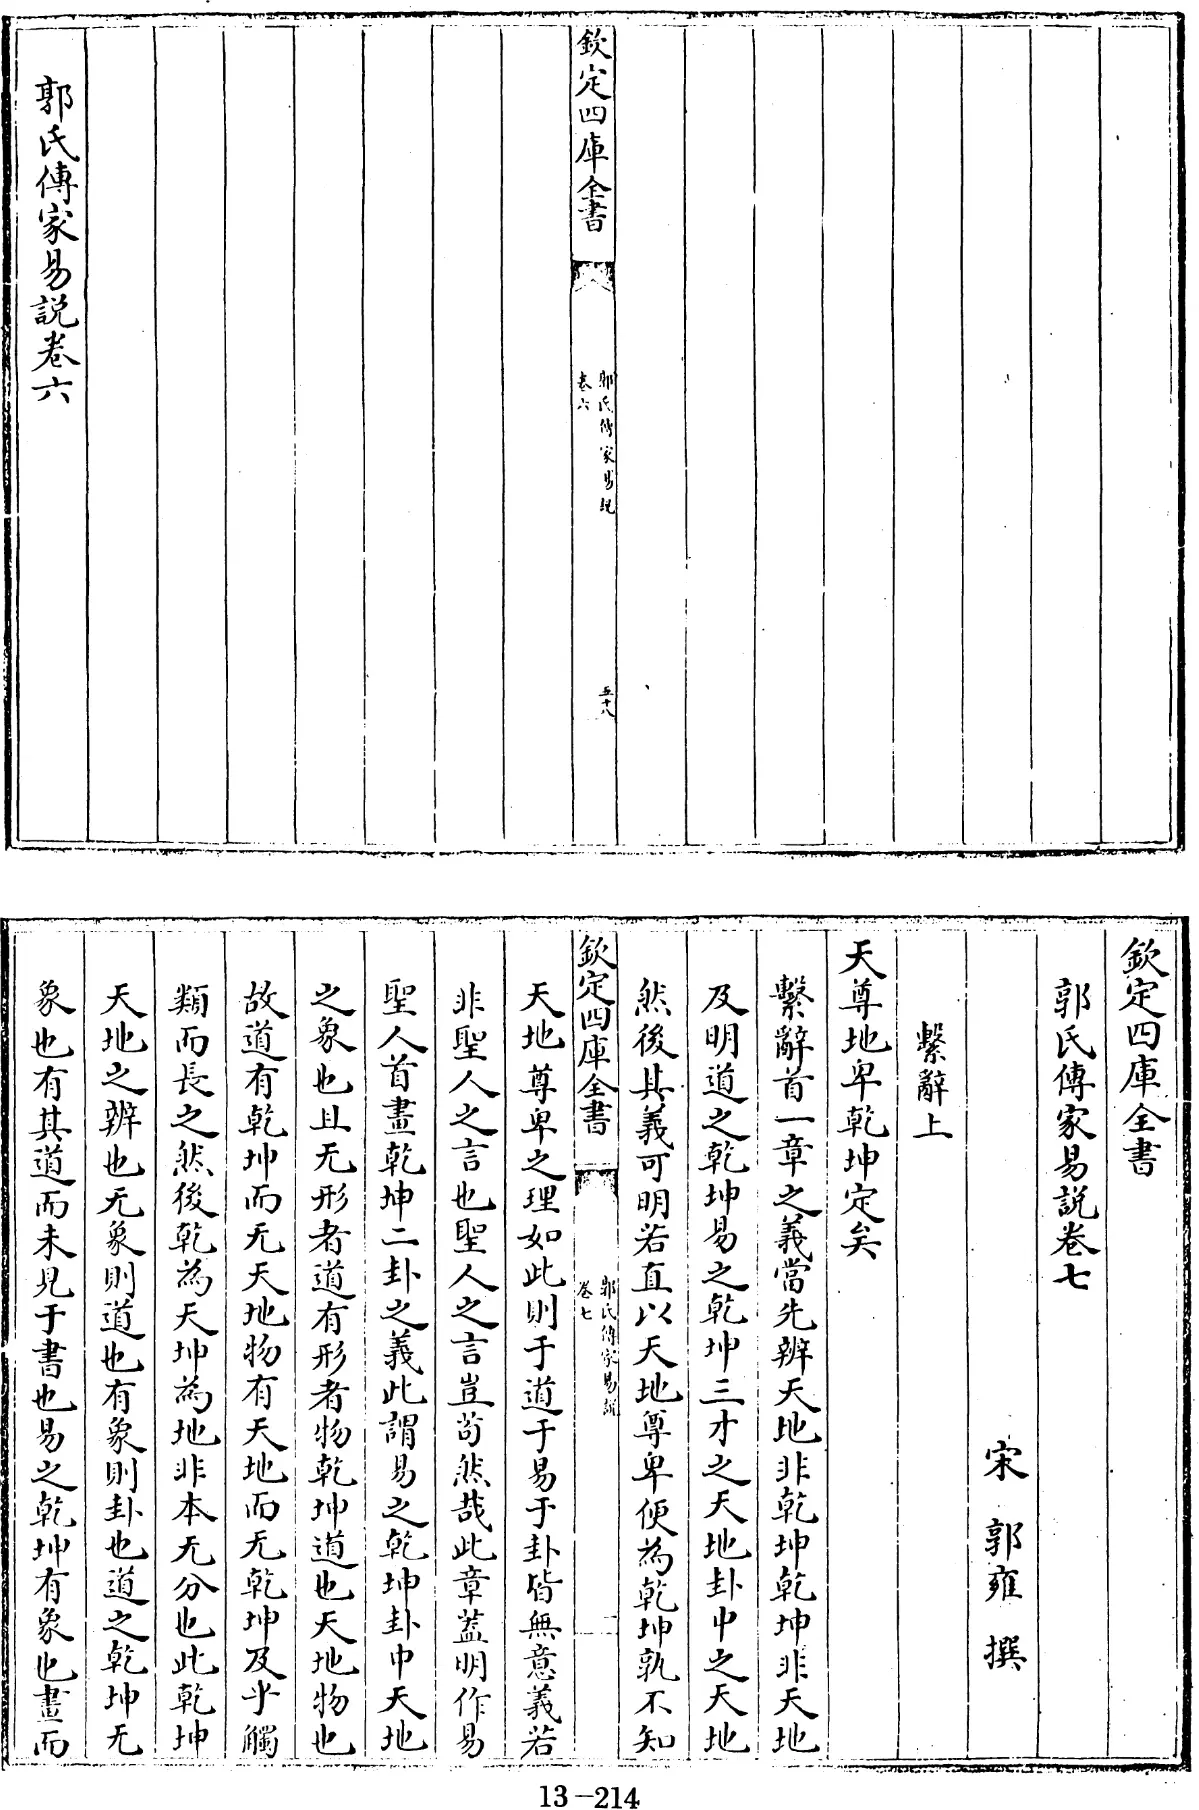 欽定四庫全書
郭氏傳家易説
卷六
五十八
郭氏傳家易説卷六
欽定四庫全書
郭氏傳家易説卷七
宋 郭雍 撰
繫辭上
天尊地卑乾坤定矣
繫辭首一章之義當先辨天地非乾坤乾坤非天地
及明道之乾坤易之乾坤三才之天地卦中之天地
然後其義可明若直以天地尊卑便為乾坤孰不知
欽定四庫全書
郭氏傳家易説
卷七
一
天地尊卑之理如此則于道于易于卦皆無意義若
非聖人之言也聖人之言豈苟然哉此章蓋明作易
聖人首畫乾坤二卦之義此謂易之乾坤卦中天地
之象也且无形者道有形者物乾坤道也天地物也
故道有乾坤而无天地物有天地而无乾坤及乎觸
類而長之然後乾為天坤為地非本无分也此乾坤
天地之辨也无象則道也有象則卦也道之乾坤无
象也有其道而未見于書也易之乾坤有象也畫而
13-214